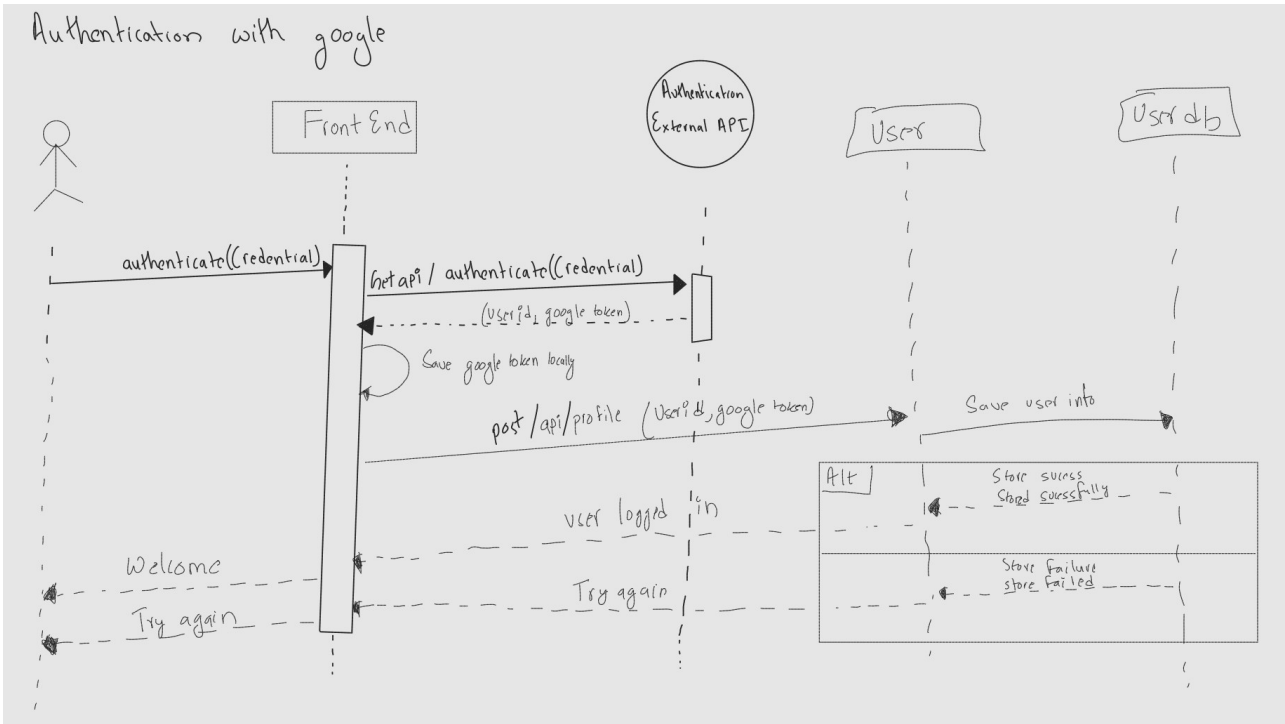 Authentication with google
Authentication
External API
Front End
User
User db
authenticate(Credential)
Get api / authenticate(Credential)
(Userid, google token)
Save google token locally
post /api/profile (Userid, google token)
Save user info
Alt
Store sucess
Stored sucessfully
user logged in
Welcome
Store failure
store failed
Try again
Try again